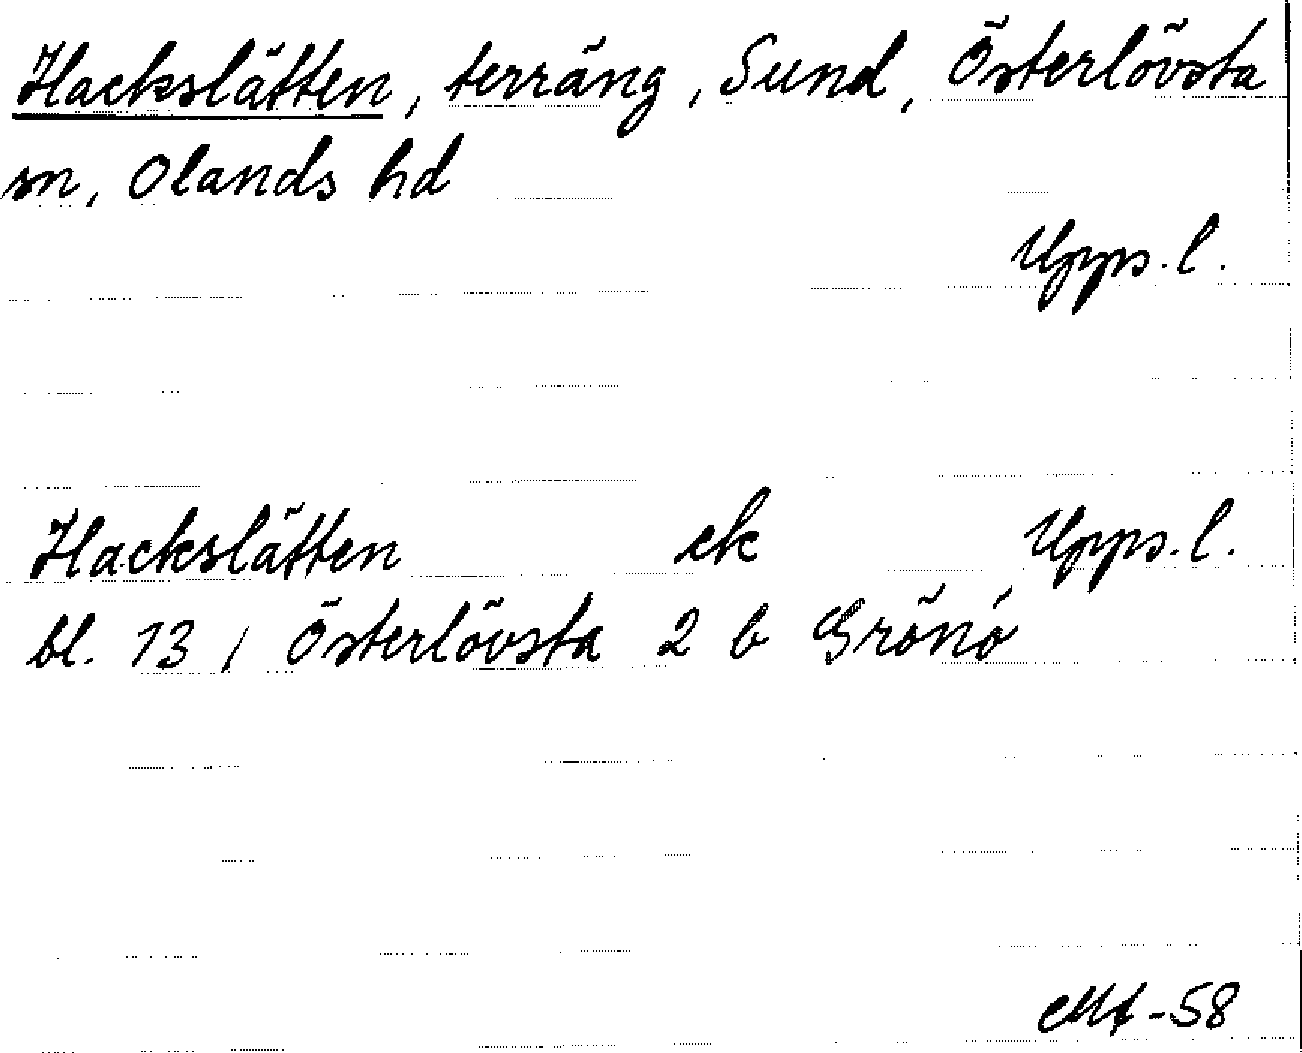 Hackslätten, terräng, Sund, Österlövsta
sn, Olands hd
Upps. l.
Hackslätten ek Upps. l.
bl. 13, Österlövsta 2 b Grönö
-58